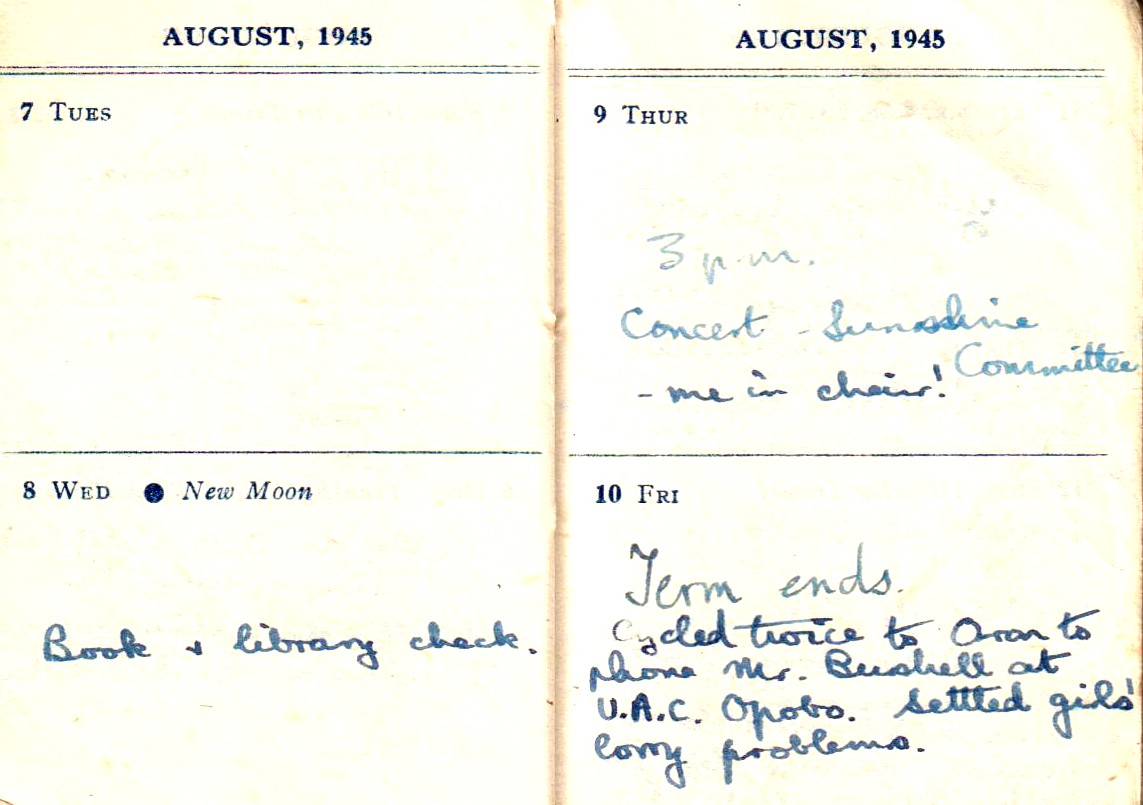 AUGUST, 1945
7 TUES
8 WED ● New Moon
Book & library check.
AUGUST, 1945
9 THUR
3 p.m.
Concert - Sunshine
Committee
- me in chair!
10 FRI
Term ends.
Cycled twice to Oron to
phone Mr. Bushell at
U.A.C. Opobo. Settled girls'
lorry problems.